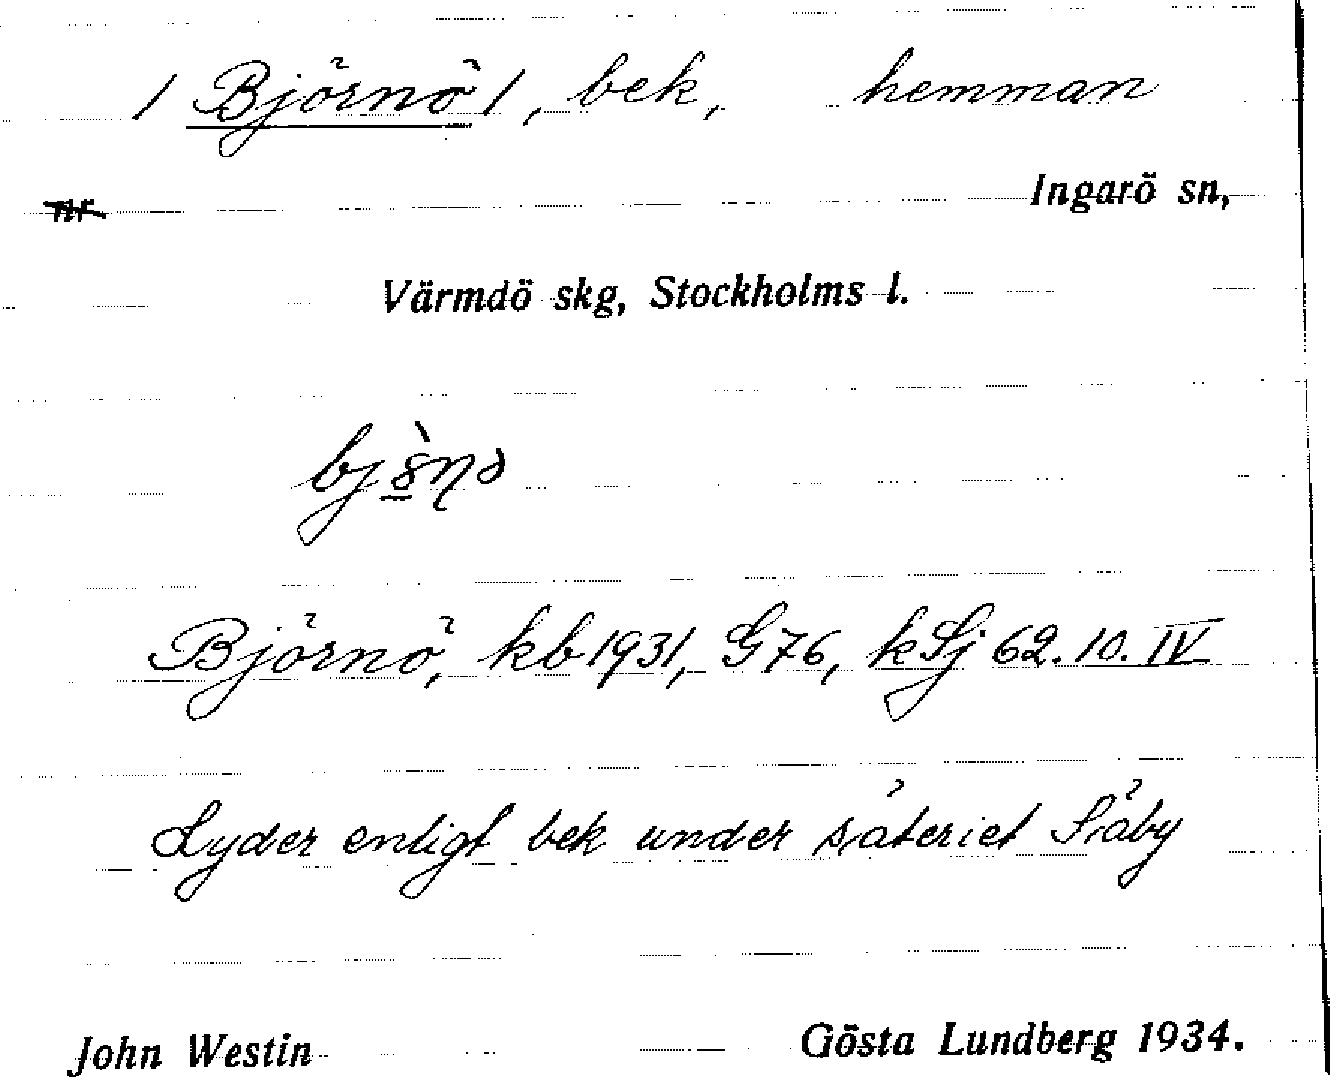 / Björnö /, bek, hemman
Ingarö sn,
Värmdö skg, Stockholms l.
Björnö, kb 1931, G76, kSj 62.10.IV
Lyder enligt bek under säteriet Säby
John Westin Gösta Lundberg 1934.